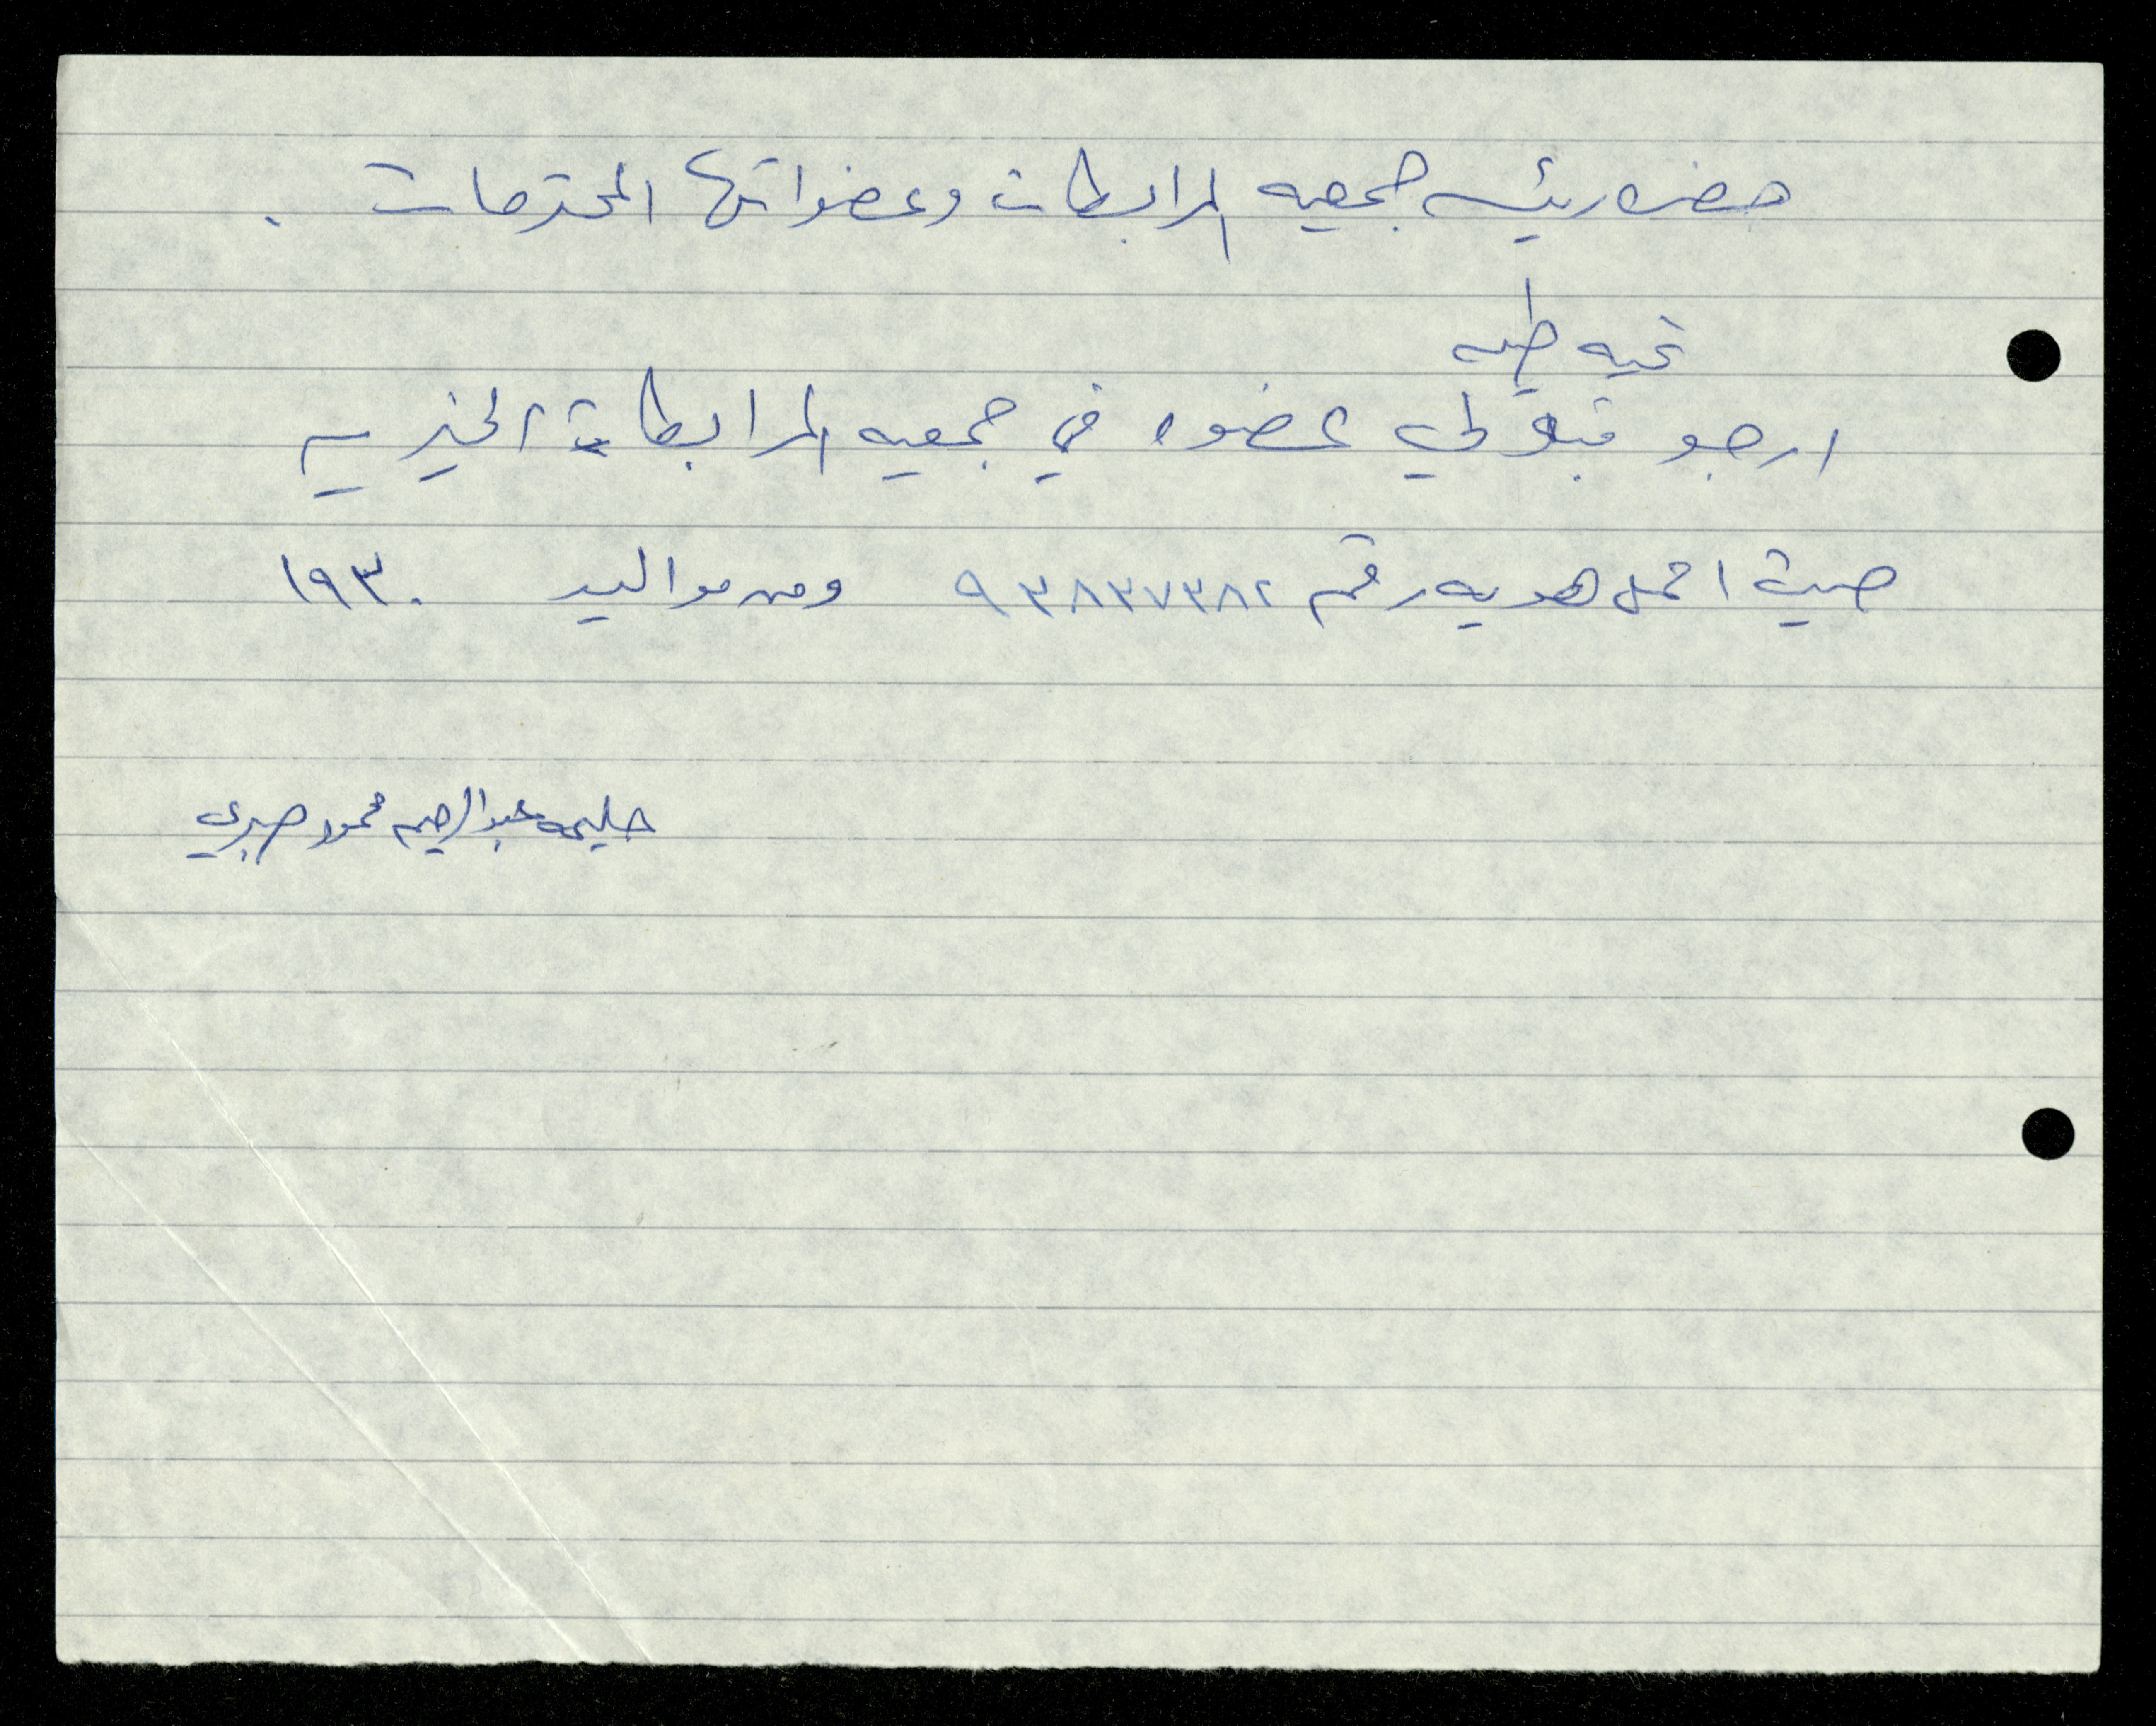 حضره رئيسه جمعيه المرابطات وعضواتها المحترمات .
تحيه طيبه
ارجو قبولي عضوه في جمعيه المرابطات الخيريه
حيث احمل هويه رقم ٩٣٨٣٧٣٨٢ ومن مواليد ١٩٣٠
حليمه عبدالرحيم محمود صبري